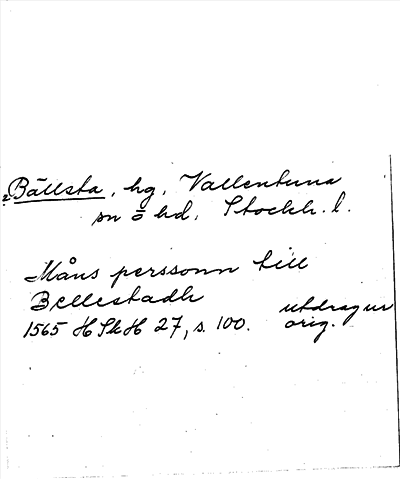 Bällsta, hg, Vallentuna
sn o hd, Stockh. l.
Måns perssonn till
Bellestadh
1565 HSkH 27, s. 100. utdrag ur
orig.